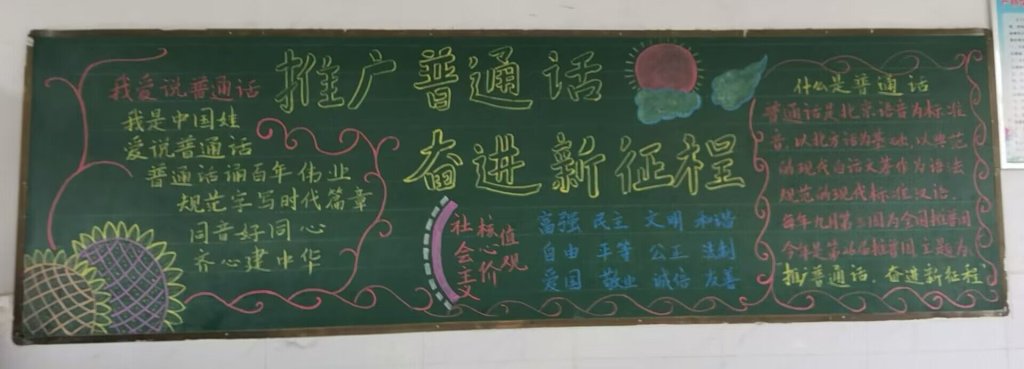 推广普通话
奋进新征程
我爱说普通话
我是中国娃
爱说普通话
普通话诵百年伟业
规范字写时代篇章
同音好同心
齐心建中华
社会主义
核心价
值观
高强 民主 文明 和谐
自由 平等 公正 法制
爱国 敬业 诚信 友善
什么是普通话
普通话是北京语音为标准
音,以北方话为基础,以典范
的现代白话文著作为语法
规范的现代标准汉语.
每年九月第三周为全国推普周
今年是第26届推普周 主题为
推广普通话,奋进新征程